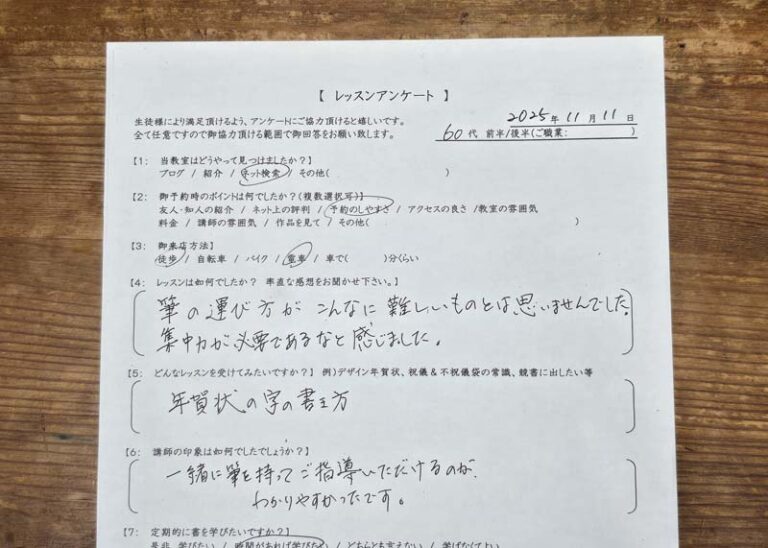 【 レッスンアンケート 】
生徒様により満足頂けるよう、アンケートにご協力頂けると嬉しいです。
全て任意ですので御協力頂ける範囲で御回答をお願い致します。
2025年 11月 11日
60代 前半/後半(ご職業: )
【1: 当教室はどうやって見つけましたか?】
ブログ / 紹介 / ネット検索 / その他( )
【2: 御予約時のポイントは何でしたか?(複数選択写)】
友人・知人の紹介 / ネット上の評判 / 予約のしやすさ / アクセスの良さ /教室の雰囲気
料金 / 講師の雰囲気 / 作品を見て / その他( )
【3: 御来店方法】
徒歩 / 自転車 / バイク / 電車 / 車で( )分くらい
【4: レッスンは如何でしたか? 率直な感想をお聞かせ下さい。】
筆の運び方が こんなに 難しいものとは思いませんでした。
集中力が必要であるなと感じました。
【5: どんなレッスンを受けてみたいですか?】 例)デザイン年賀状、祝儀&不祝儀袋の常識、競書に出したい等
年賀状の字の書き方
【6: 講師の印象は如何でしたでしょうか?】
一緒に筆を持ってご指導いただけるのが、
わかりやすかったです。
【7: 定期的に書を学びたいですか?】
是非、学びたい / 時間があれば学びたい / どちらとも言えない / 学ばなくてよい